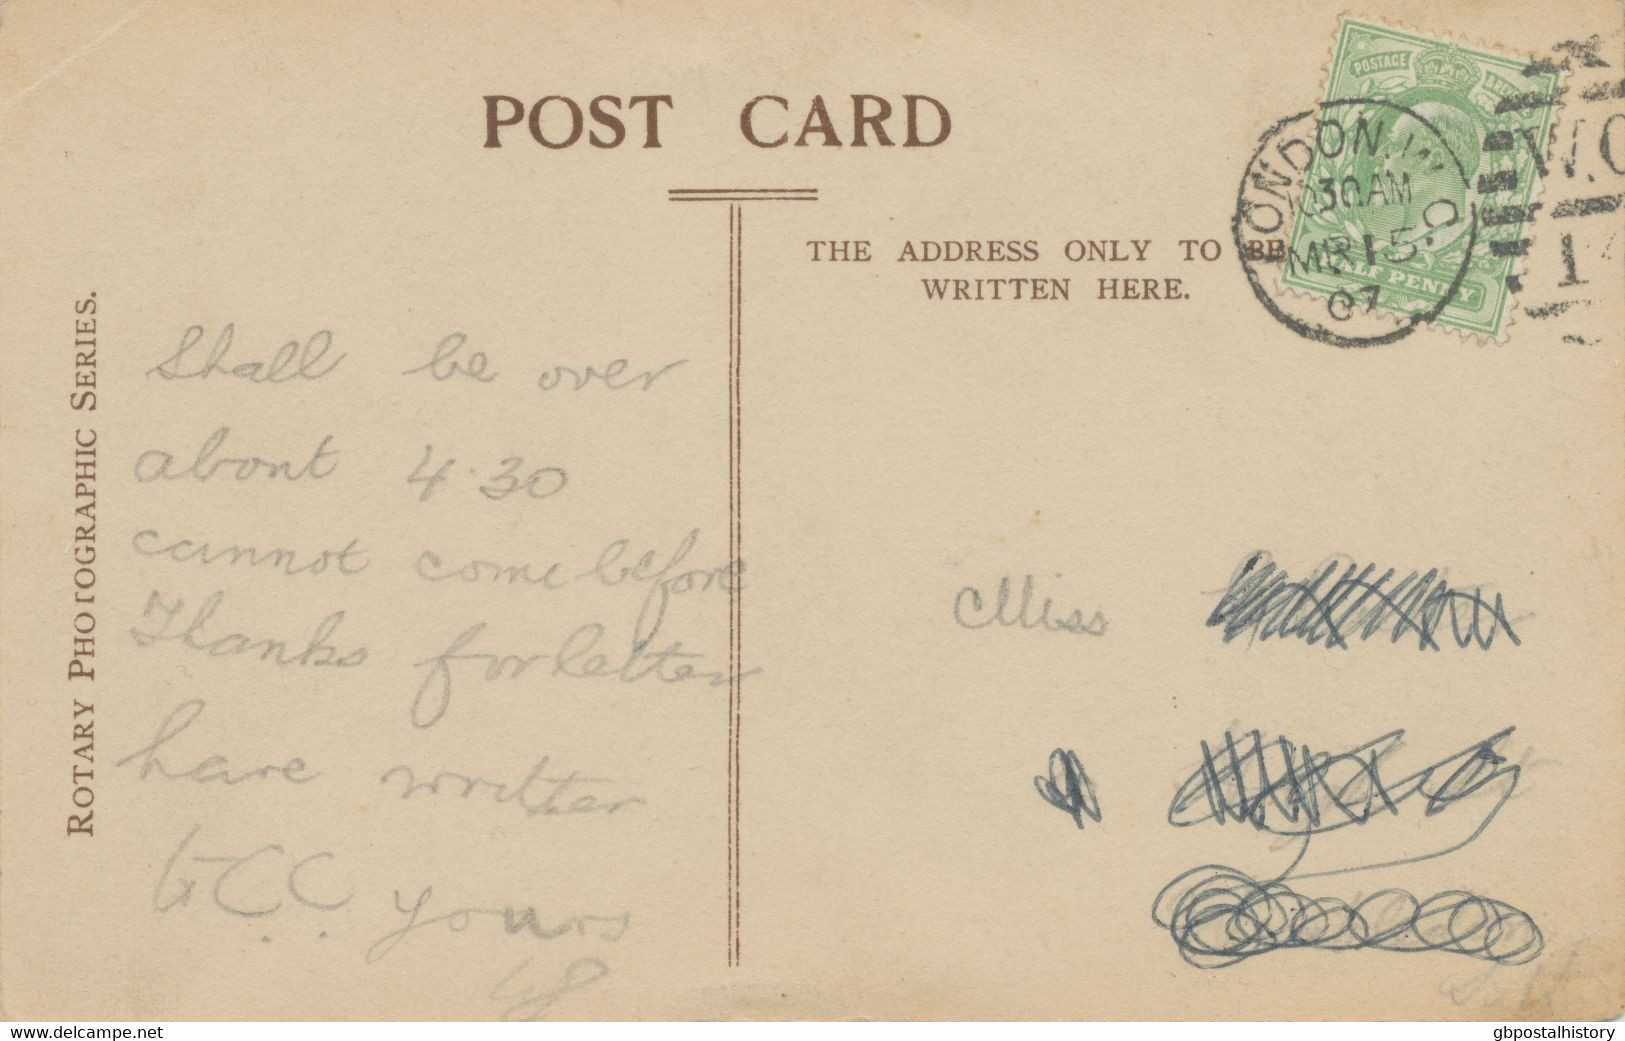 POST CARD
THE ADDRESS ONLY TO BE
WRITTEN HERE.
ROTARY PHOTOGRAPHIC SERIES.
POSTAGE
HALF PENNY
LONDON W.C
10 30 AM
MR 15
07
W.C
14
Shall be over
about 4.30
cannot come before
Thanks for letter
have written
G.C.C. yours
Miss
www.delcampe.net
gbpostalhistory